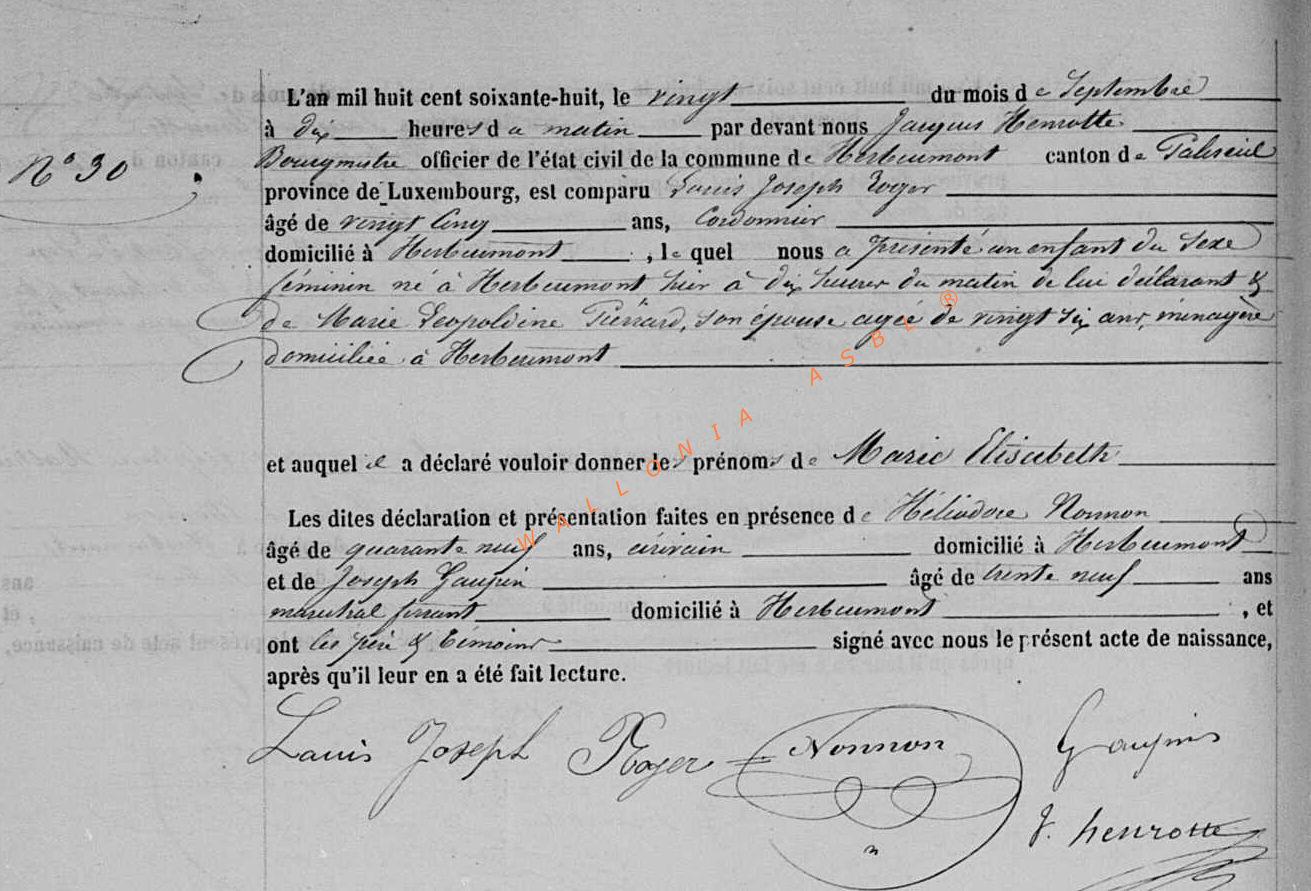 L'an mil huit cent soixante-huit, le vingt du mois de Septembre
à dix heures du matin par devant nous Jacques Henrotte
N° 30
Bourgmestre officier de l'état civil de la commune de Herbeumont canton de Paliseul
province de Luxembourg, est comparu Louis Joseph Roger
âgé de vingt cinq ans, Cordonnier
domicilié à Herbeumont, le quel nous a présenté un enfant du sexe
féminin né à Herbeumont hier à dix heures du matin de lui déclarant &
de Marie Leopoldine Pierrard, son épouse agée de vingt six ans, ménagère
domiciliée à Herbeumont
et auquel il a déclaré vouloir donner les prénoms de Marie Elisabeth
Les dites déclaration et présentation faites en présence de Héliodore Nonnon
âgé de quarante neuf ans, écrivain domicilié à Herbeumont
et de Joseph Gaupin âgé de trente neuf ans
marechal ferrant domicilié à Herbeumont, et
ont les père & témoins signé avec nous le présent acte de naissance,
après qu'il leur en a été fait lecture.
Louis Joseph Roger Nonnon Gaupin
J. henrotte
WALLONIA ASBL ®